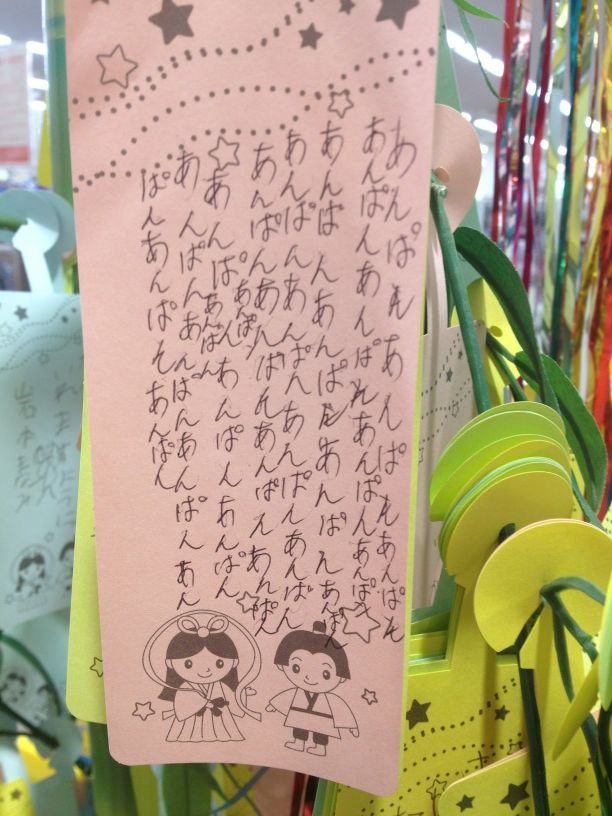 あんぱんあんぱんあんぱん
あんぱんあんぱんあんぱんあんぱん
あんぱんあんぱんあんぱんあんぱん
あんぱんあんぱんあんぱんあんぱん
あんぱんあんぱんあんぱんあんぱん
あんぱんあんぱんあんぱん
あんぱんあんぱん
あんぱんあんぱんあんぱんあん
ぱんあんぱんあんぱん